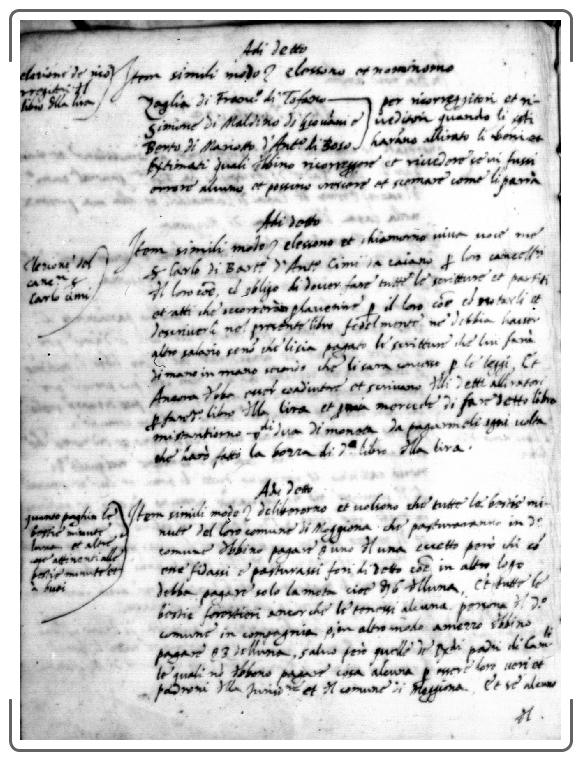 Adi detto
elezione de rico
rregitori del
libro della lira
Item simili modo elessono et nominorno
Zaglia di Franc.o di Tofano
Simone di Maldino di Giovanni e
Berto di Mariotto d'Ant.o di Boso
per ricorreggitori et ri-
veditori quando li
harano allirato li beni et
Estimati quali debbino ricorreggere et rivedere se vi fussi
errore alcuno et possino crescere et scemare come li parrà
Adi detto
Elezione del
canc.re S.
Carlo Cimi
Item simili modo elessono et chiamorno viva voce me
S. Carlo di Bart.o d'Ant.o Cimi da caiano p loro cancell.ri
del loro coe, co obligo di dover fare tutte le scritture et partiti
et atti che occorreranno p il loro coe et notarli et
descriverli nel presente libro fedelmente ne debbia haver
altro salario se no che li sia pagato le scritture che lui farà
di mano in mano secondo che li sara concesso p le leggi, Et
Ancora debba esser coadiutore et scrivano delli detti alliratori
p fare d.o libro della lira et p mia mercede di fare detto libro
mi stantiorno di dua di moneta da pagarmeli ogni volta
che harò fatti la bozza di d.o libro della lira.
Adi detto
quanto paghin le
bestie minute
luna et altre
attenenti alle
bestie minute et
a buoi
Item simili modo deliberorno et volsono che tutte le bestie mi-
nute del loro comune di Moggiona che pasturaranno in d.o
comune debbino pagare uno dell una eccetto però chi
ene fidassi e pasturassi fori di detto coe in altro logo
debba pagare solo la metà cioè d 6 dell una, Et tutte le
bestie forestieri ancor che le tenessi alcuna persona del d.o
comune in compagnia o in altro modo a mezzo debbino
pagare dell una, salvo però quelle de padri di Cam.li
le quali no debbono pagare cosa alcuna p essere loro veri et
padroni della et del comune di Moggiona, Et se alcuno